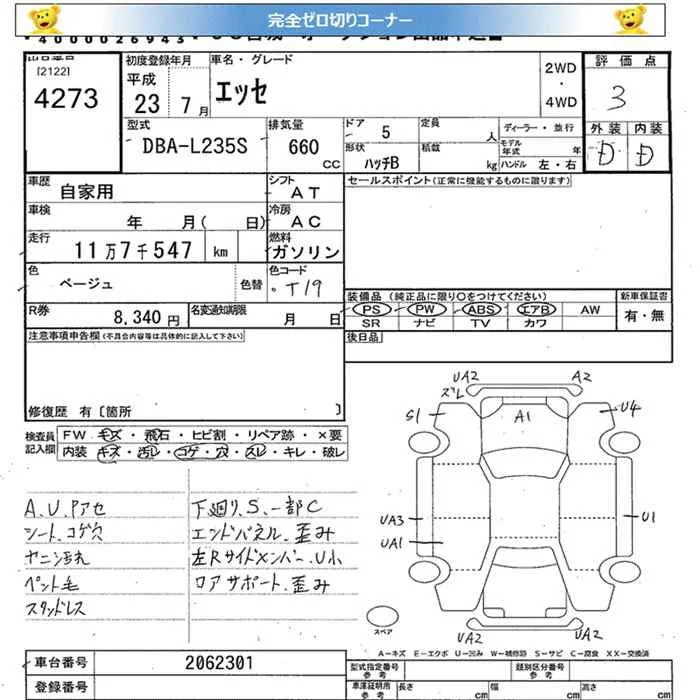 完全ゼロ切りコーナー
[2122]
4273
初度登録年月
平成
23 7月
車名・グレード
エッセ
2WD
・
4WD
評価点
3
外装 内装
D D
型式
DBA-L235S
排気量
660
CC
ドア 5
形状 ハッチB
定員 人
積載 kg
ディーラー・並行
モデル年式 年
ハンドル 左・右
車歴
自家用
シフト
AT
車検
年 月( 日)
冷房
AC
走行
11万7千547 km
燃料
ガソリン
色
ベージュ
色替
色コード
T19
R券
8,340円
名変通知期限
月 日
セールスポイント(正常に機能するものに限ります)
装備品(純正品に限り○をつけてください)
PS PW ABS エアB AW
SR ナビ TV カワ
新車保証書
有・無
後日品
注意事項申告欄(不具合内容等は具体的に記入して下さい)
修復歴 有〔箇所 〕
検査員
記入欄
FW キズ・飛石・ヒビ割・リペア跡・×要
内装 キズ・汚レ・コゲ・穴・スレ・キレ・破レ
A.U.Pアセ
シート.コゲ穴
ヤニ汚れ
ペット毛
スタッドレス
下廻り.S.一部C
エンドパネル.歪み
左Rサイドメンバー.U小
ロアサポート.歪み
UA2
ズレ
A2
S1
A1
U4
UA3
UA1
U1
UA2
UA2
スペア
A-キズ E-エクボ U-凹み W-補修跡 S-サビ C-腐食 XX-交換済
車台番号
2062301
登録番号
型式指定番号
参考
類別区分番号
参考
車庫証明用
参考
長さ cm
幅 cm
高さ cm